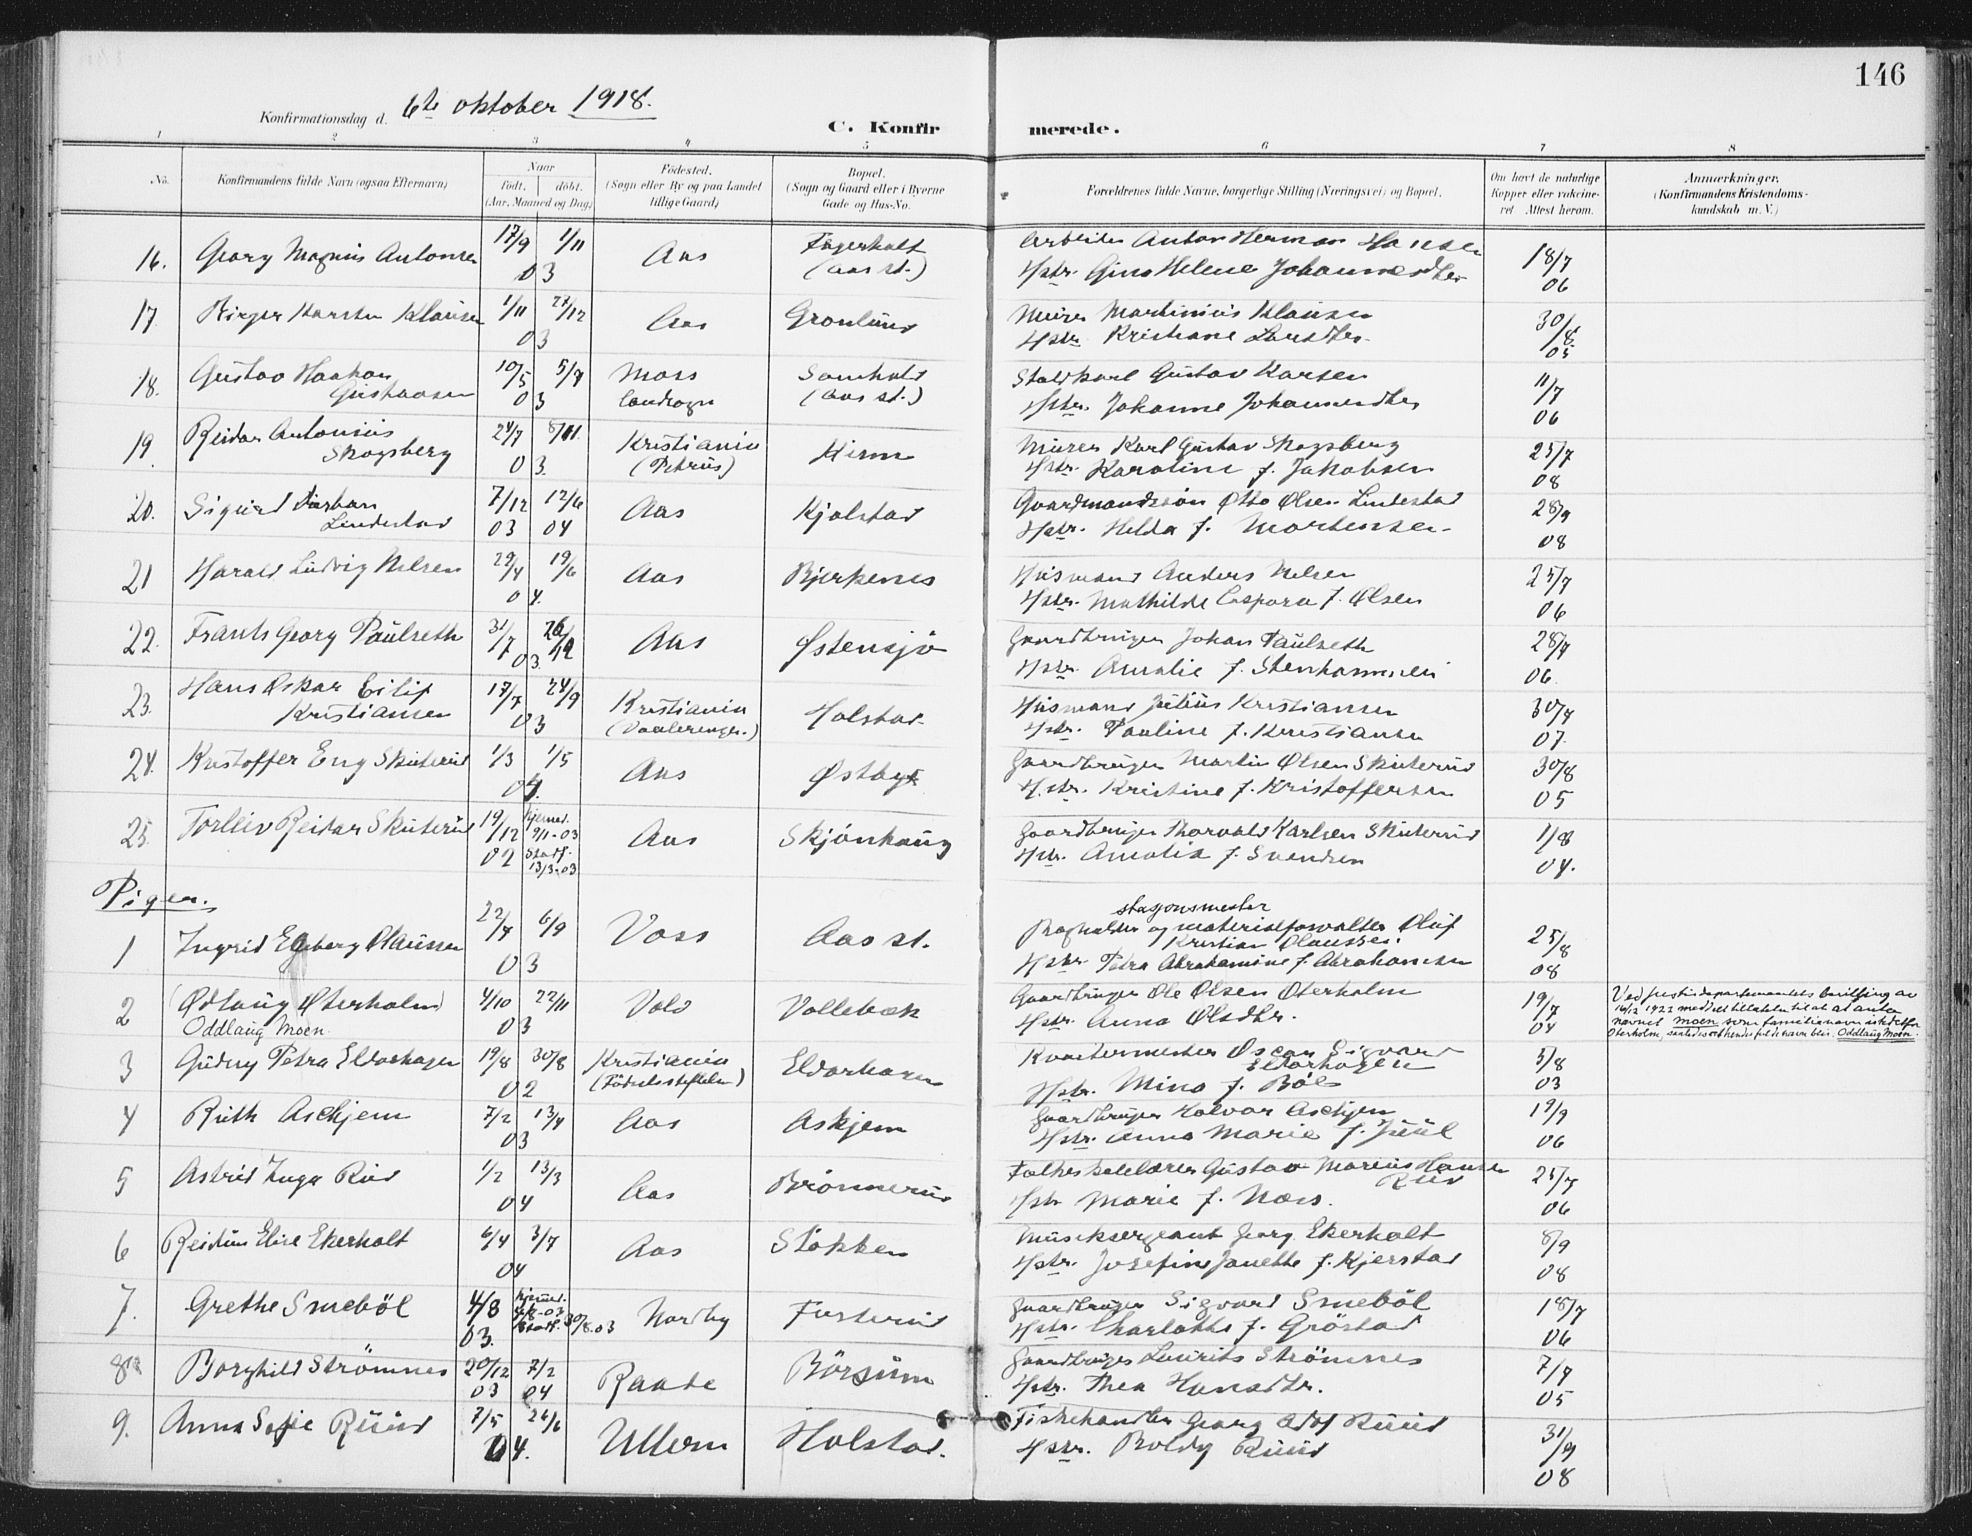 146
Konfirmationsdag d. 6te oktober 1918.
C. Konfirmerede.
1 2 3 4 5 6 7 8
No. Konfirmandens fulde Navn (ogsaa Efternavn) Naar født. døbt. (Aar, Maaned og Dag) Födested. (Sogn eller By og paa Landet tillige Gaard) Bopæl. (Sogn og Gaard eller i Byerne Gade og Hus-No. Forældrenes fulde Navne, borgerlige Stilling (Næringsvei) og Bopæl. Om havt de naturlige Kopper eller vakcineret Attest herom. Anmærkninger. (Konfirmandens Kristendomskundskab m.V.)
16. Georg Magnus Antonsen 17/9 1/11 03 Aas Fagerholt (Aas st.) Arbeider Anton Herman Hansen 18/7
Hstr. Gina Helene Johannesdter 06
17 Birger Karsten Klausen 1/11 27/12 03 Aas Gronlund Murer Martinius Klausen 30/8
Hstr. Kristiane Larsdter. 05
18. Gustav Haakon Gustavsen 10/5 5/7 03 Moss landsogn Solnhold (Aas st.) Staldkarl Gustav Karsen 11/7
Hstr. Johanne Johannesdter 06
19. Reidar Antonius Skogsberg 24/7 8/11 03. Kristiania (Petrus) Kirm Murer Karl Gustav Skogsberg 25/7
Hstr. Karoline f. Jakobsen 08
20. Sigurd Lindestad 7/12 03 12/6 04 Aas Kjølstad Gaardmandssøn Otto Olsen Lindestad 28/9
Hstr. Hilda f. Mortensen 08
21 Harald Ludvig Nilsen 22/4 19/6 04. Aas Bjerkenes Husmand Anders Nilsen 25/7
Hstr. Mathilde Caspara f. Olsen 06
22. Frants Georg Paulseth 31/7 26/12 03 Aas Østensjø Gaardbruger Johan Paulseth 28/7
Hstr. Amalie f. Stenhammer 06.
23. Hans Oskar Eilif Kristiansen 17/7 24/9 03 Kristiania (Vaalerengen.) Holstad. Husmand Julius Kristiansen 30/7
Hstr. Pauline f. Kristiansen 07.
24. Kristoffer Eng Skuterud 1/3 1/5 04. Aas Østby Gaardbruger Martin Olsen Skuterud 30/8
Hstr. Kristine f. Kristoffersen 05
25. Torleiv Reidar Skuterud 19/12 02 hjemmed. 9/1-03 Stadf. 13/3-03 Aas Skjønhaug Gaardbruger Thorvald Karlsen Skuterud 1/8
Hstr. Amalia f. Svendsen 04.
Piger.
1 Ingrid Egeberg Olaussen 22/7 6/9 03 Voss Aas st. stasjonsmester
Braghalder og materialforvalter Oluf Kristian Olaussen. 25/8
Hstr. Petra Abrahamine f. Abrahamsen 08
2 (Ødlaug Oterholm) Oddlaug Moen 4/10 22/11 03 Vold Vollebæk Gaardbruger Ole Olsen Oterholm 19/7
Hstr. Anna Olsdtr. 04
Ved justisdepartementets bevilling av
16/12 1922 meddelt tillatelse til at anta
navnet Moen som familienavn istedetfor
Oterholm, Oddlaug Moen.
3 Gudny Petra Eldorhagen 19/8 30/8 02 Kristiania (Fødselsstiftelsen) Eldorhagen Kvartermester Oscar Sigvard Eldorhagen 5/8
Hstr. Mina f. Böe 03
4 Ruth Aschjem 7/2 13/4 03 Aas Askjem Gaardbruger Halvor Aschjem 19/9
Hstr. Anna Marie f. Juul 06
5 Astrid Inga Rud 1/2 13/3 04 Aas Brönnerud Folkeskolelærer Gustav Marius Hansen Rud 25/7
Hstr Marie f. Næss. 06
6 Reidun Elise Ekerholt 6/4 3/7 04 Aas Stokken Musiksergeant Georg Ekerholt 8/9
Hstr. Josefine Janette f. Kjerstad 08
7. Grethe Smeböl 4/8 03. hjemmed. Stadf. 30/8.03 Nordby Fosterud Gaardbruger Sigvard Smeböl 18/7
Hstr. Charlotte f. Gröstad 06
8 Borghild Strömnes 20/12 03 7/2 04 Raade Börsum Gaardbruger Laurits Strömnes 7/7
Hstr. Thea Hansdtr. 05
9. Anna Sofie Ruud 7/5 26/6 04. Ullern Holstad. Fiskehandler Georg Adof Ruud 31/9
Hstr. Boldy Ruud 08